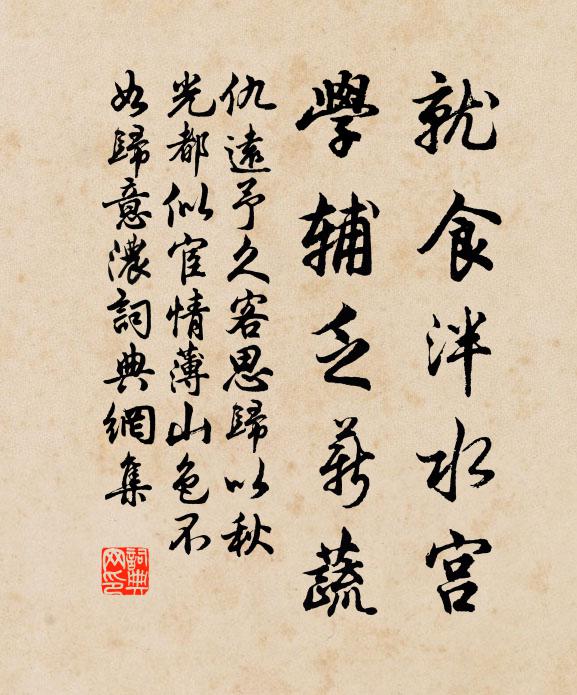 就食泮水宫
學辅乏薪蔬
仇遠予久客思歸以秋
光都似宦情薄山色不
如歸意濃詞典網集
詞典
网印